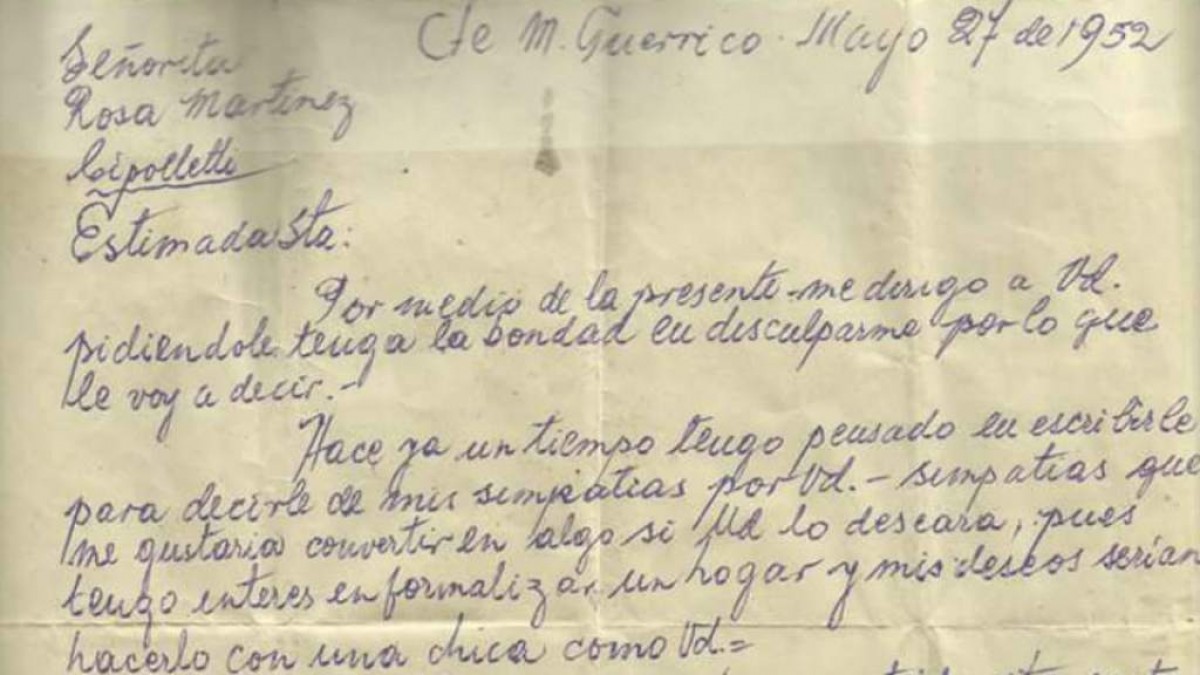 Cte M. Guerrico. Mayo 27 de 1952
Señorita
Rosa Martinez
Cipolletti
Estimada Sta:
Por medio de la presente me dirigo a Vd.
pidiendole tenga la bondad en disculparme por lo que
le voy a decir.-
Hace ya un tiempo tengo pensado en escribirle
para decirle de mis simpatias por Vd.- simpatias que
me gustaria convertir en algo si Ud lo deseara, pues
tengo interes en formalizar un hogar y mis deseos serían
hacerlo con una chica como Vd.=